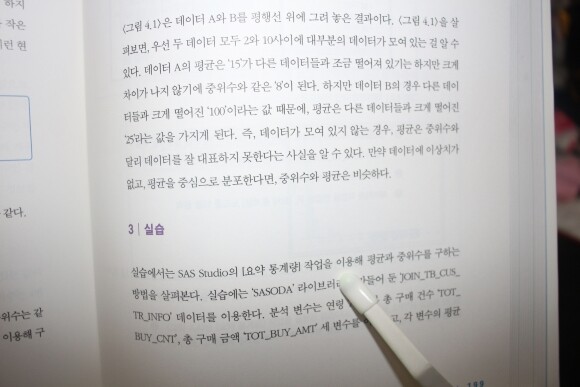 하지
작은
이런 현
같다.
위수는 같
이용해 구
〈그림 4.1〉은 데이터 A와 B를 평행선 위에 그려 놓은 결과이다. 〈그림 4.1〉을 살
펴보면, 우선 두 데이터 모두 2와 10사이에 대부분의 데이터가 모여 있는 걸 알 수
있다. 데이터 A의 평균은 '15'가 다른 데이터들과 조금 떨어져 있기는 하지만 크게
차이가 나지 않기에 중위수와 같은 '8'이 된다. 하지만 데이터 B의 경우 다른 데이
터들과 크게 떨어진 '100'이라는 값 때문에, 평균은 다른 데이터들과 크게 떨어진
'25'라는 값을 가지게 된다. 즉, 데이터가 모여 있지 않는 경우, 평균은 중위수와
달리 데이터를 잘 대표하지 못한다는 사실을 알 수 있다. 만약 데이터에 이상치가
없고, 평균을 중심으로 분포한다면, 중위수와 평균은 비슷하다.
3 | 실습
실습에서는 SAS Studio의 [요약 통계량] 작업을 이용해 평균과 중위수를 구하는
방법을 살펴본다. 실습에는 'SASODA' 라이브러리 만들어 둔 'JOIN_TB_CUS_
TR_INFO' 데이터를 이용한다. 분석 변수는 연령 총 구매 건수 'TOT_
BUY_CNT', 총 구매 금액 'TOT_BUY_AMT' 세 변수를 고, 각 변수의 평균